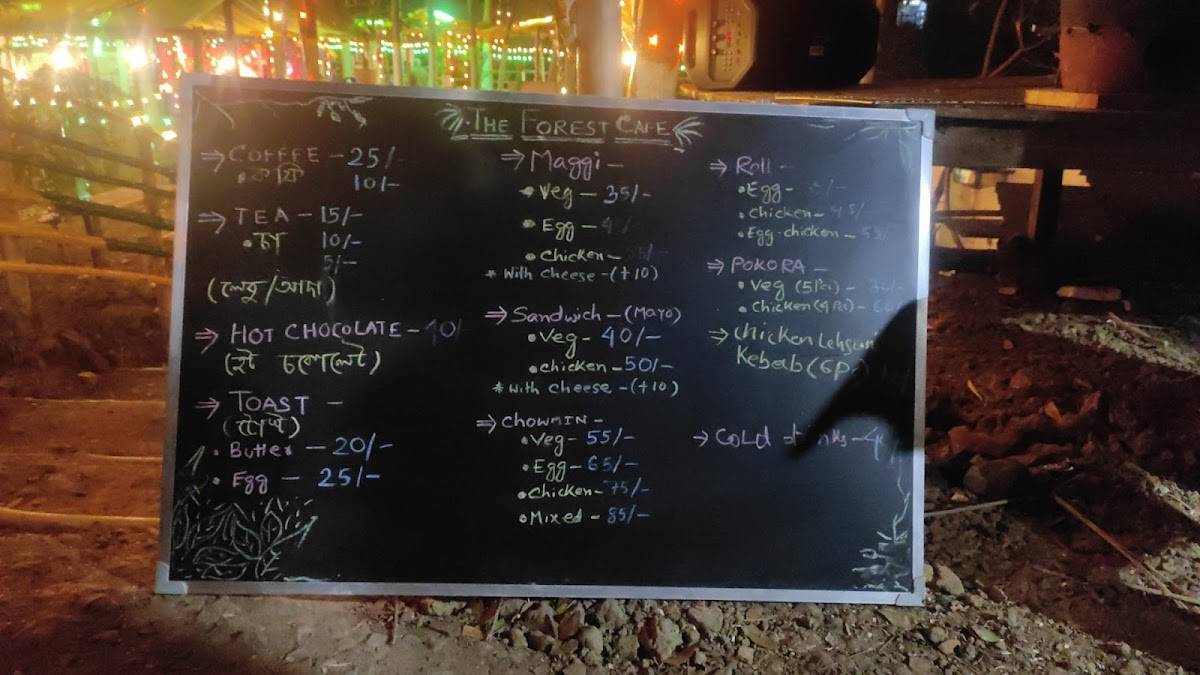 THE FOREST CAFE
⇒ COFFEE - 25/-
• কফি 10/-
⇒ TEA - 15/-
• চা 10/-
5/-
(লেবু/আদা)
⇒ HOT CHOCOLATE - 40/
(হট চকলেট)
⇒ TOAST -
(টোস্ট)
• Butter - 20/-
• Egg - 25/-
⇒ Maggi -
• Veg - 35/-
• Egg -
• Chicken -
* With cheese - (+10)
⇒ Sandwich - (Mayo)
• Veg - 40/-
• chicken - 50/-
* With cheese - (+10)
⇒ CHOWMIN -
• Veg - 55/-
• Egg - 65/-
• Chicken - 75/-
• Mixed - 85/-
⇒ Roll -
• Egg -
• chicken - 45/
• Egg-chicken -
⇒ POKORA -
• Veg (5Pci) -
• Chicken (4Pci) -
→ Chicken Lehsuni
Kebab (6Pc
→ COLD